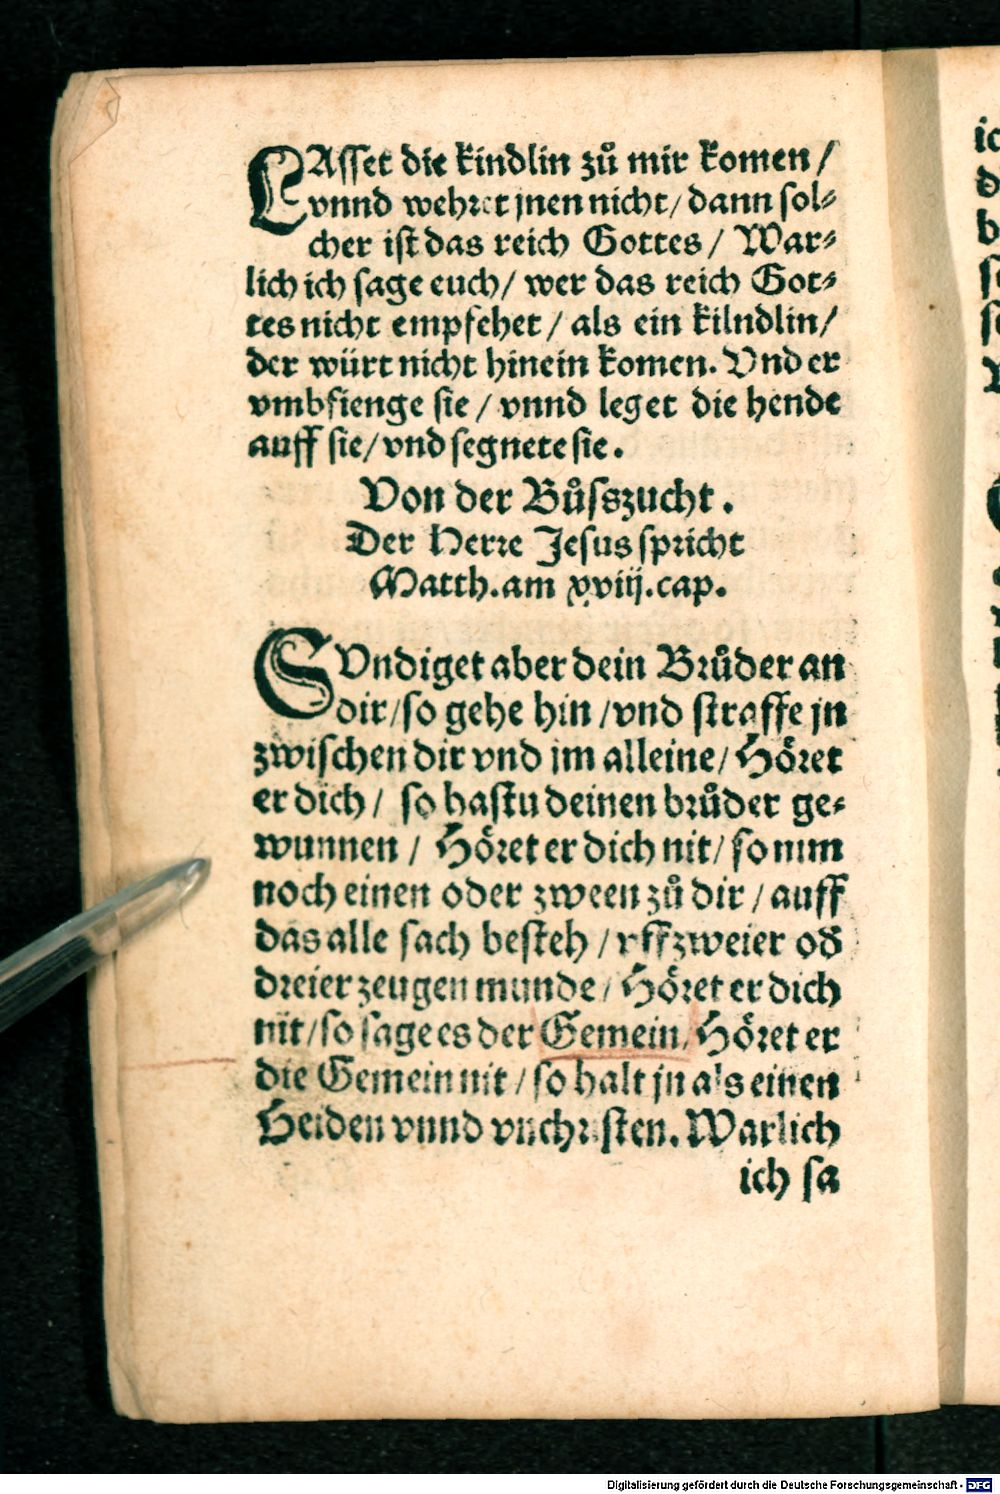 LAsset die kindlin zů mir komen /
vnnd wehret jnen nicht / dann sol⸗
cher ist das reich Gottes / War⸗
lich ich sage euch / wer das reich Got⸗
tes nicht empfehet / als ein kilndlin /
der würt nicht hinein komen. Vnd er
vmbfienge sie / vnnd leget die hende
auff sie / vnd segnete sie.
Von der Bůsszucht.
Der Herre Jesus spricht
Matth. am xviij. cap.
SVndiget aber dein Brůder an
dir / so gehe hin / vnd straffe jn
zwischen dir vnd jm alleine / Höret
er dich / so hastu deinen brůder ge⸗
wunnen / Höret er dich nit / so nim
noch einen oder zween zů dir / auff
das alle sach besteh / vff zweier od
dreier zeugen munde / Höret er dich
nit / so sage es der Gemein / Höret er
die Gemein nit / so halt jn als einen
Heiden vnnd vnchristen. Warlich
ich sa
Digitalisierung gefördert durch die Deutsche Forschungsgemeinschaft - DFG